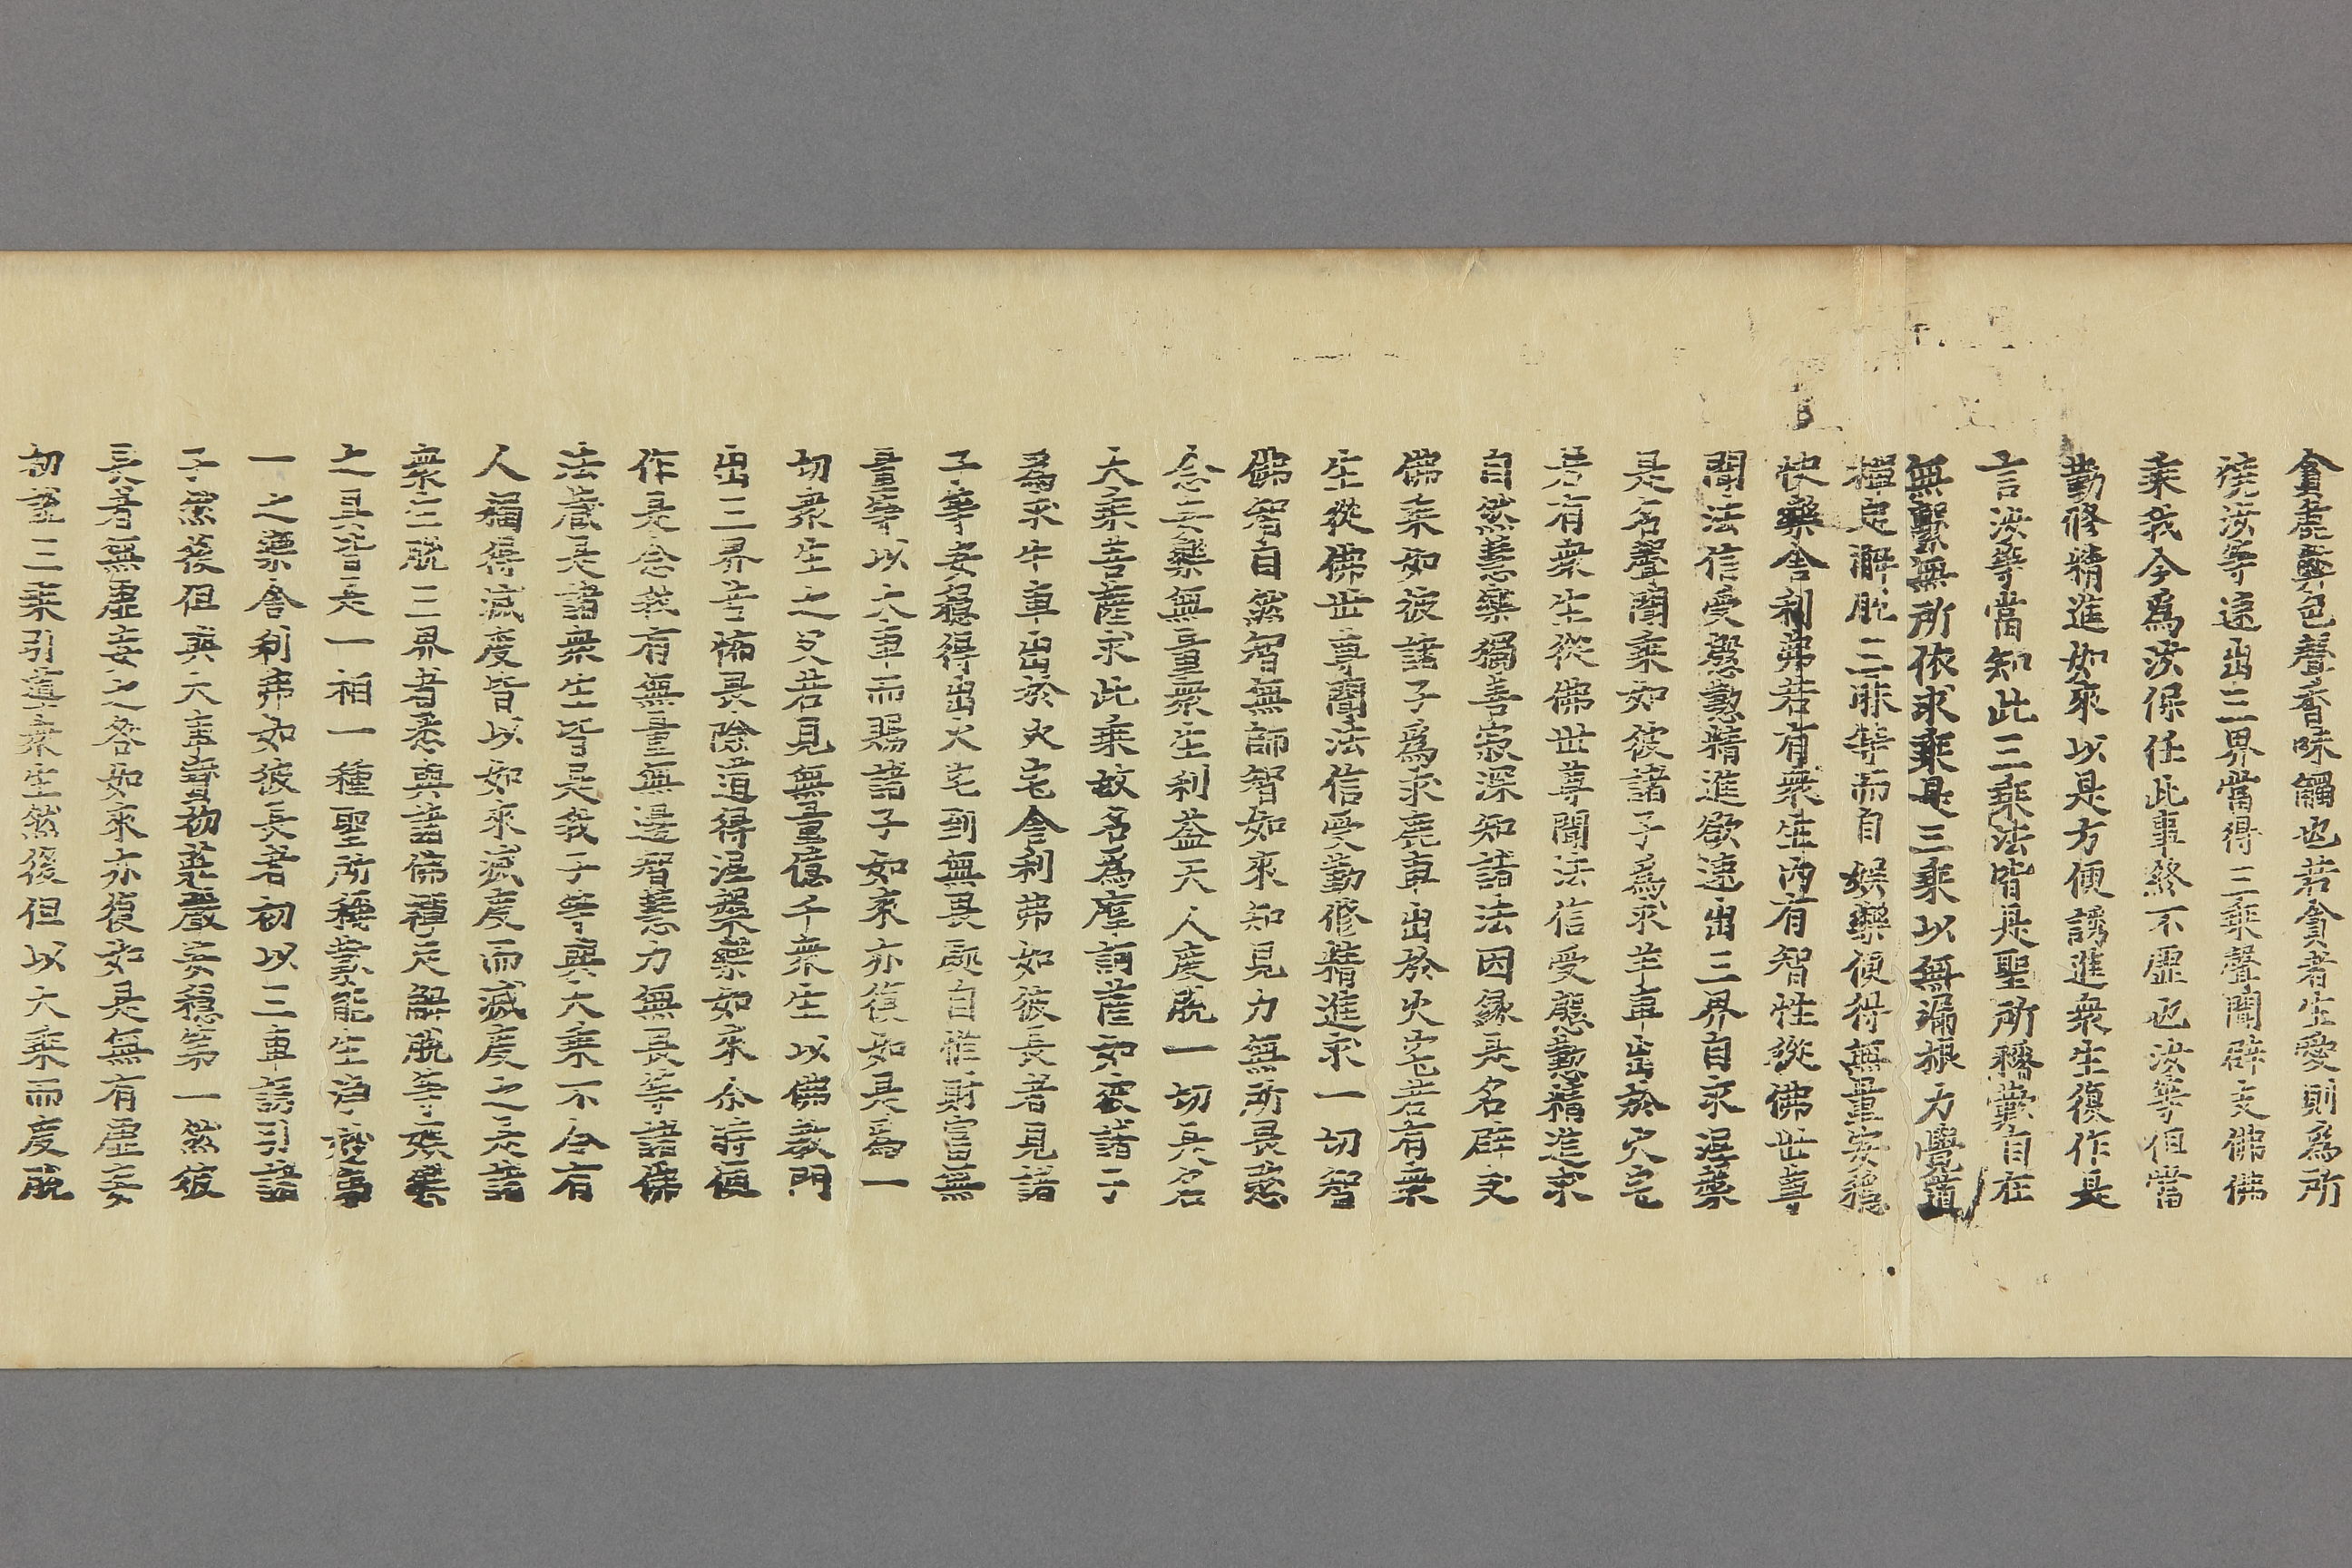 貪麁弊色聲香味觸也若貪著生愛則爲所
燒汝等速出三界當得三乘聲聞辟支佛佛
乘我今爲汝保任此事終不虛也汝等但當
勤修精進如來以是方便誘進衆生復作是
言汝等當知此三乘法皆是聖所稱歎自在
無繫無所依求乘是三乘以無漏根力覺道
禪定解脫三昧等而自娛樂便得無量安穩
快樂舍利弗若有衆生內有智性從佛世尊
聞法信受慇懃精進欲速出三界自求涅槃
是名聲聞乘如彼諸子爲求羊車出於火宅
若有衆生從佛世尊聞法信受慇懃精進求
自然慧樂獨善寂深知諸法因緣是名辟支
佛乘如彼諸子爲求鹿車出於火宅若有衆
生從佛世尊聞法信受勤修精進求一切智
佛智自然智無師智如來知見力無所畏愍
念安樂無量衆生利益天人度脫一切是名
大乘菩薩求此乘故名爲摩訶薩如彼諸子
爲求牛車出於火宅舍利弗如彼長者見諸
子等安穩得出火宅到無畏處自惟財富無
量等以大車而賜諸子如來亦復如是爲一
切衆生之父若見無量億千衆生以佛教門
出三界苦怖畏險道得涅槃樂如來尒時便
作是念我有無量無邊智慧力無畏等諸佛
法藏是諸衆生皆是我子等與大乘不令有
人獨得滅度皆以如來滅度而滅度之是諸
衆生脫三界者悉與諸佛禪定解脫等娛樂
之具皆是一相一種聖所稱歎能生淨妙第
一之樂舍利弗如彼長者初以三車誘引諸
子然後但與大車寶物莊嚴安穩第一然彼
長者無虛妄之咎如來亦復如是無有虛妄
初說三乘引導衆生然後但以大乘而度脫